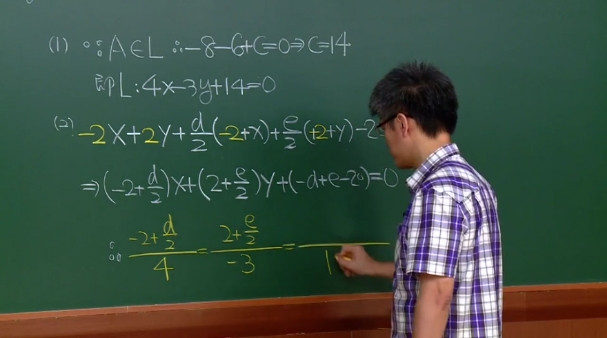 (1) ∵A∈L ∴-8-6+C=0⇒C=14
即L:4x-3y+14=0
(2) -2x+2y+d/2(-2+x)+e/2(+2+y)-2
⇒(-2+d/2)x+(2+e/2)y+(-d+e-20)=0
∴ (-2+d/2)/4 = (2+e/2)/-3 = /1